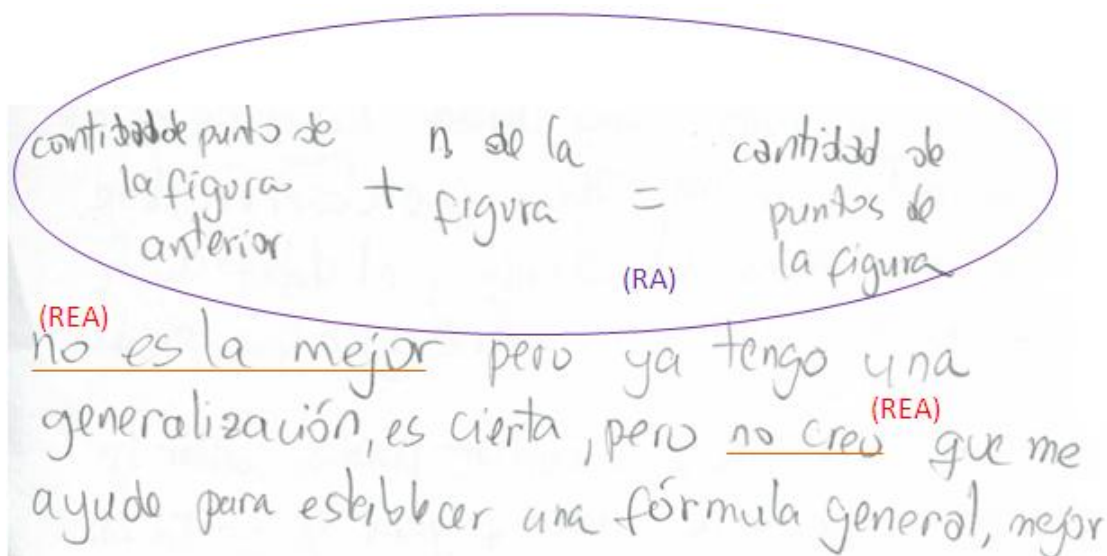 cantidad de punto de la figura anterior + n de la figura = cantidad de puntos de la figura
(RA)
(REA)
no es la mejor pero ya tengo una
(REA)
generalización, es cierta, pero no creo que me
ayude para establecer una fórmula general, mejor